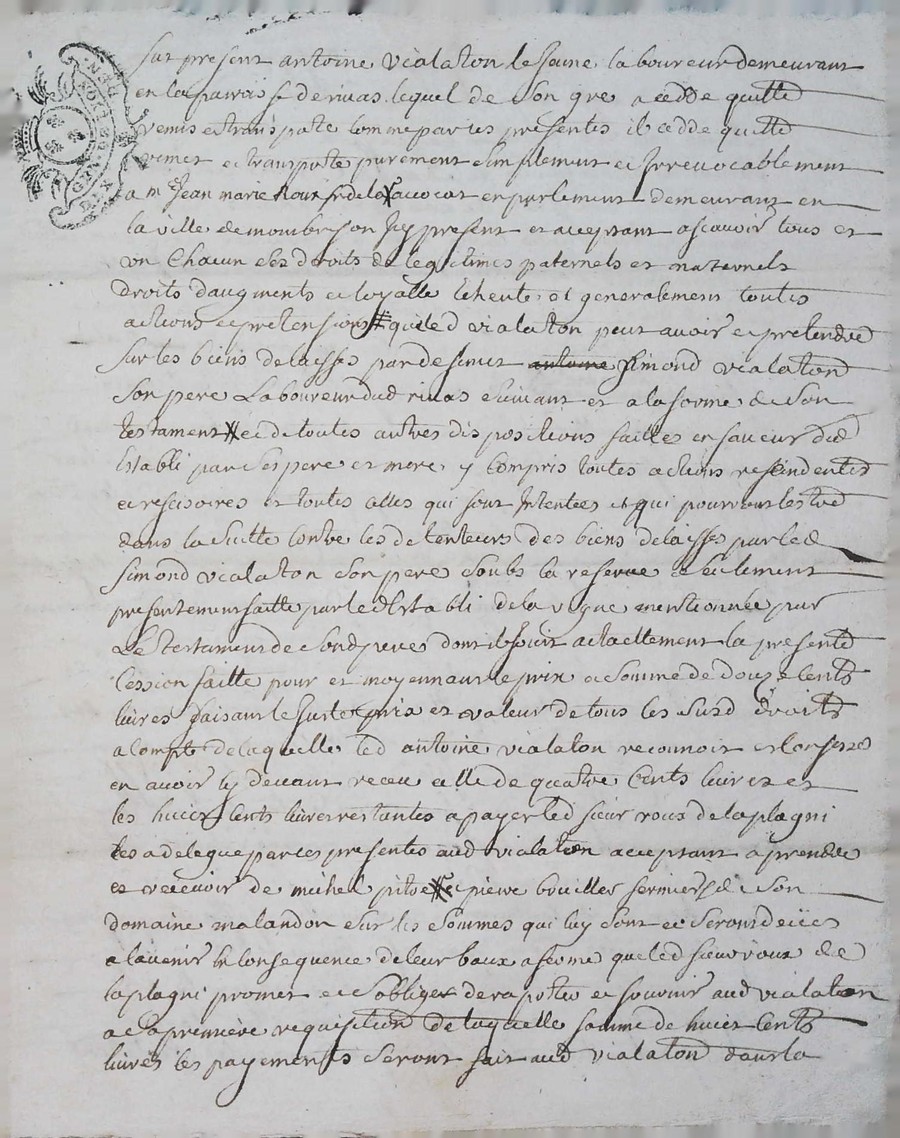 fut present antoine vialaton le jeune laboureur demeurant
en la paroisse de rivas lequel de son gre a cedde quitte
remis et transporte comme par ces presentes il cedde quitte
remet et transporte purement simplement et Irrevocablement
a mr Jean marie Roux sr de la avocat en parlement demeurant en
la ville de mombrison Icy present et acceptant ascavoir tous et
un Chacun ses droits de legitimes paternels et maternels
droits daugments et loyalle echeute et generalement toutes
actions et pretensions que led vialaton peut avoir et pretendre
sur les biens delaisses par defunct antoine Simond vialaton
son pere Laboureur dud rivas suivant et a la forme de son
testament et de toutes autres dispositions faittes en faveur dud
Establi par ses pere et mere, y compris toutes actions rescindentes
et rescisoires et toutes celles qui sont Intentées et qui pourront lestre
dans la suitte contre les detenteurs des biens delaisses par led
Simond vialaton son pere soubs la reserve seulement
presentement faitte par led Establi de la vigne mentionnée par
Le testament de sond pere dont il jouit actuellement la presente
Cession faitte pour et moyennant le prix et somme de douze cents
livres faisant le juste prix et valeur de tous les susd droits
a compte de laquelle led antoine vialaton reconnoit et confesse
en avoir cy devant receu celle de quatre Cents livres et
les huict cents livres restantes a payer led sieur roux de laplagni
les a delegue par ces presentes aud vialaton acceptant a prendre
et recevoir de michel et pierre fermiers de son
domaine malandon sur les sommes qui luy sont et seront deües
a lavenir En consequence de leur baux a ferme que led sieur roux de
laplagni promet et soblige de raporter et fournir aud vialaton
a sa première requisition de laquelle somme de huict cents
livres les payements seront fait aud vialaton dans la